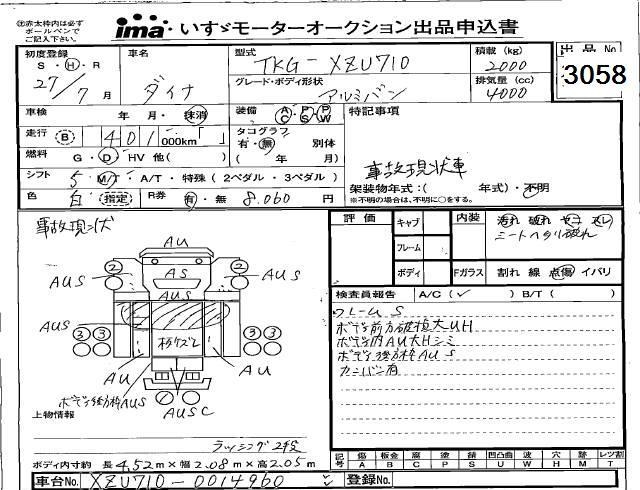 ㊟赤太枠内は必ず
ボールペンで
ご記入下さい。
ima いすゞモーターオークション出品申込書
初度登録 車名 型式 積載 (kg) 出品 No
S・H・R TKG-XZU710 2000
27/7 月 ダイナ グレード・ボディ形状 排気量 (cc) 3058
アルミバン 4000
車検 年 月・抹消 装備 A/C P/S P/W 特記事項
走行 B 401 000km「 」 タコグラフ
有・無 別体
燃料 G・D・HV 他( ) ( 年 月) 事故現状車
シフト 5 M/T・A/T・特殊 (2ペダル・3ペダル) 架装物年式:( 年式)・不明
色 白 指定 R券 有・無 8.060 円 ※不明の場合は、不明に○をする。
事故現状 評価 キャブ 内装 汚れ 破れ ヤニ スレ
シートヘタリ破れ
フレーム
ボディ Fガラス 割れ 線 点傷 イバリ
AU
2 2
AUS AS AUS
AUS
AUS AUS
3 3 3 3
AU AU
AUSC
検査員報告 A/C(✓) B/T( )
フレームS
ボデー前方破損大UH
ボデー内AU大Hシミ
ボデー後方枠AUS
カンバン有
ボデー後方枠AUS
上物情報
ラッシング2段
ボディ内寸約 長4.52m×幅2.08m×高2.05m
記号 傷 板金 腐 塗 錆 凹凸曲 波 穴 跡 レツ割
A B C P S U W H M T
車台No. XZU710-0014960 登録No.